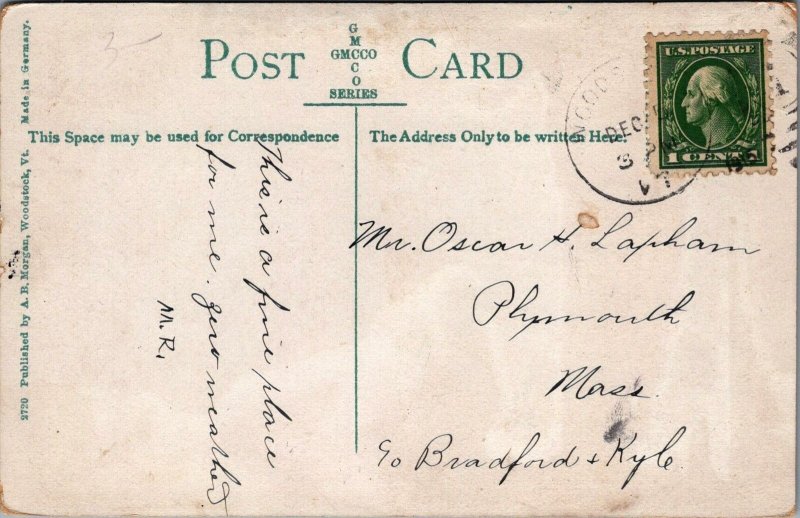 POST CARD
G
M
GMCCO
C
O
SERIES
This Space may be used for Correspondence
The Address Only to be written Here.
2720 Published by A. B. Morgan, Woodstock, Vt. Made in Germany.
This is a fine place
for me. zero weather
M. R.
U.S. POSTAGE
1 CENT 1
WOODS
DEC
3 PM
VT
Mr. Oscar H. Lapham
Plymouth
Mass.
c/o Bradford & Kyle